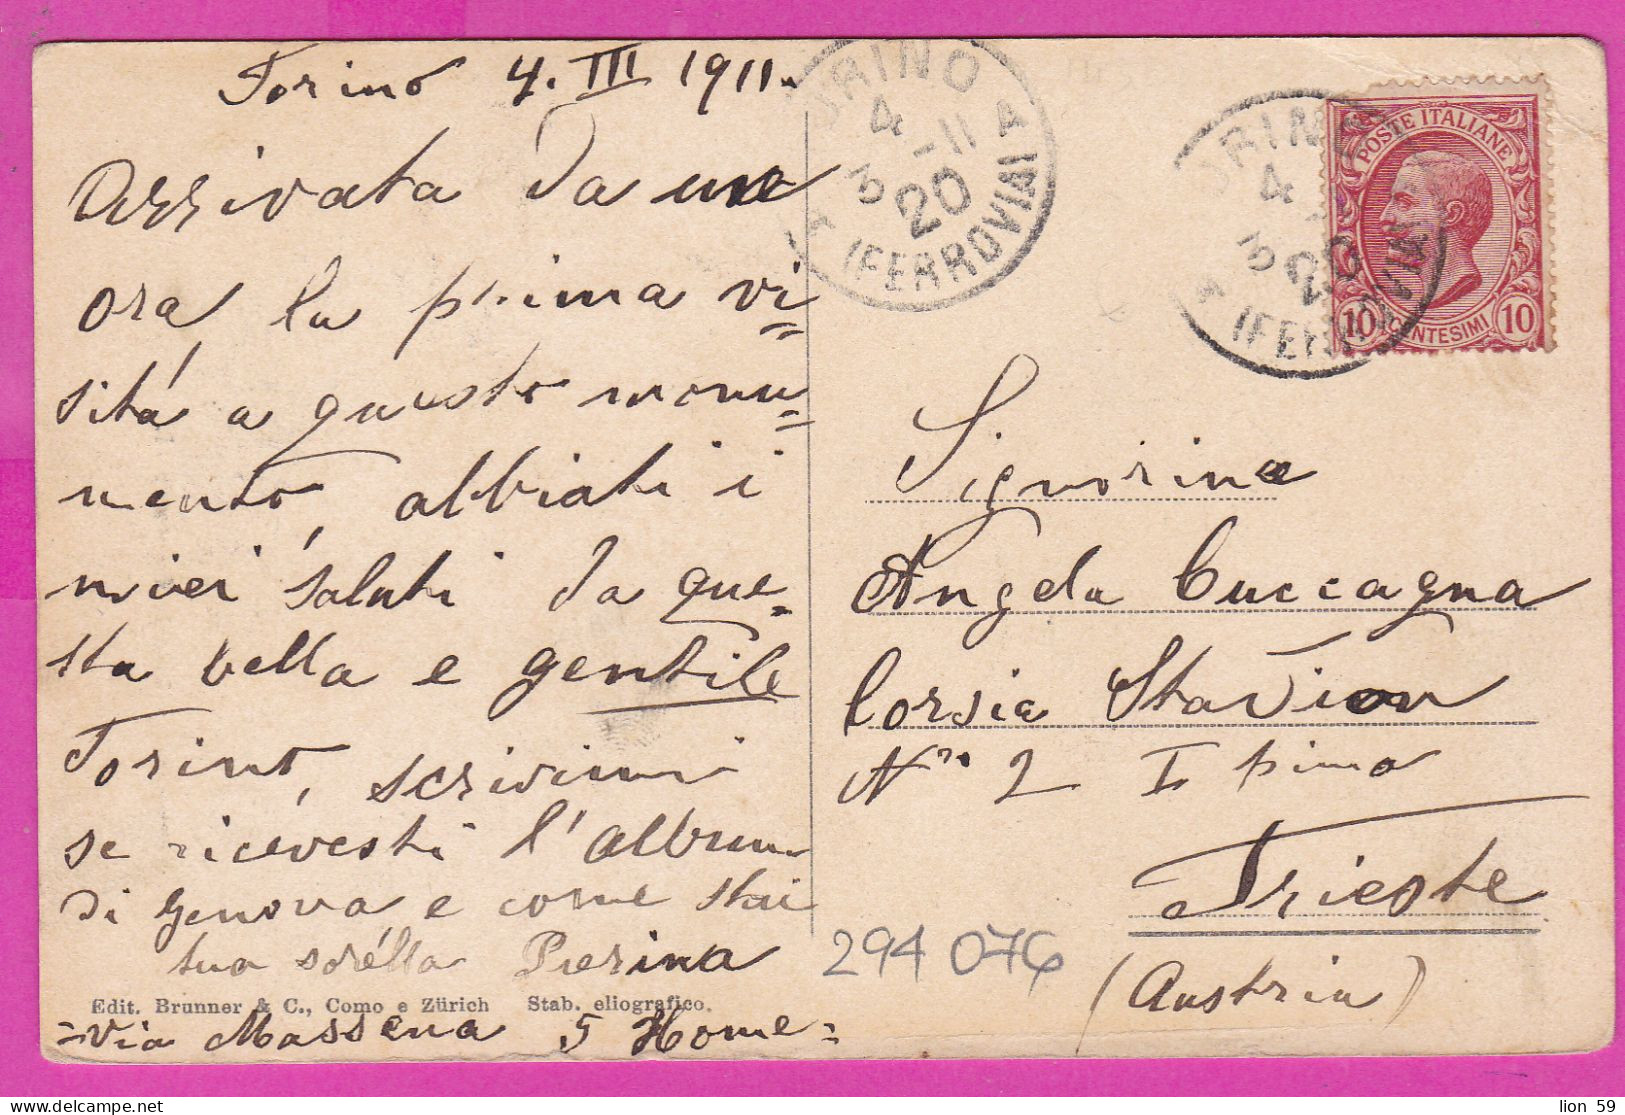 Torino 4. III 1911.
Arrivata da une
ora la prima vi=
sitá a questo monu=
mento, abbiati i
miei saluti da que=
sta bella e gentile
Torino, scrivimi
se ricevesti l'album
di Genova e come stai
tua sorella Pierina
Edit. Brunner & C., Como e Zürich Stab. eliografico.
=Via Massena 5 Home=
TORINO
4 -11
3 20
FERROVIA
POSTE ITALIANE
10 CENTESIMI 10
Signorina
Angela Cuccagna
Corsia Stadion
No 2 I pimo
Trieste
(Austria)
294 076
lion 59